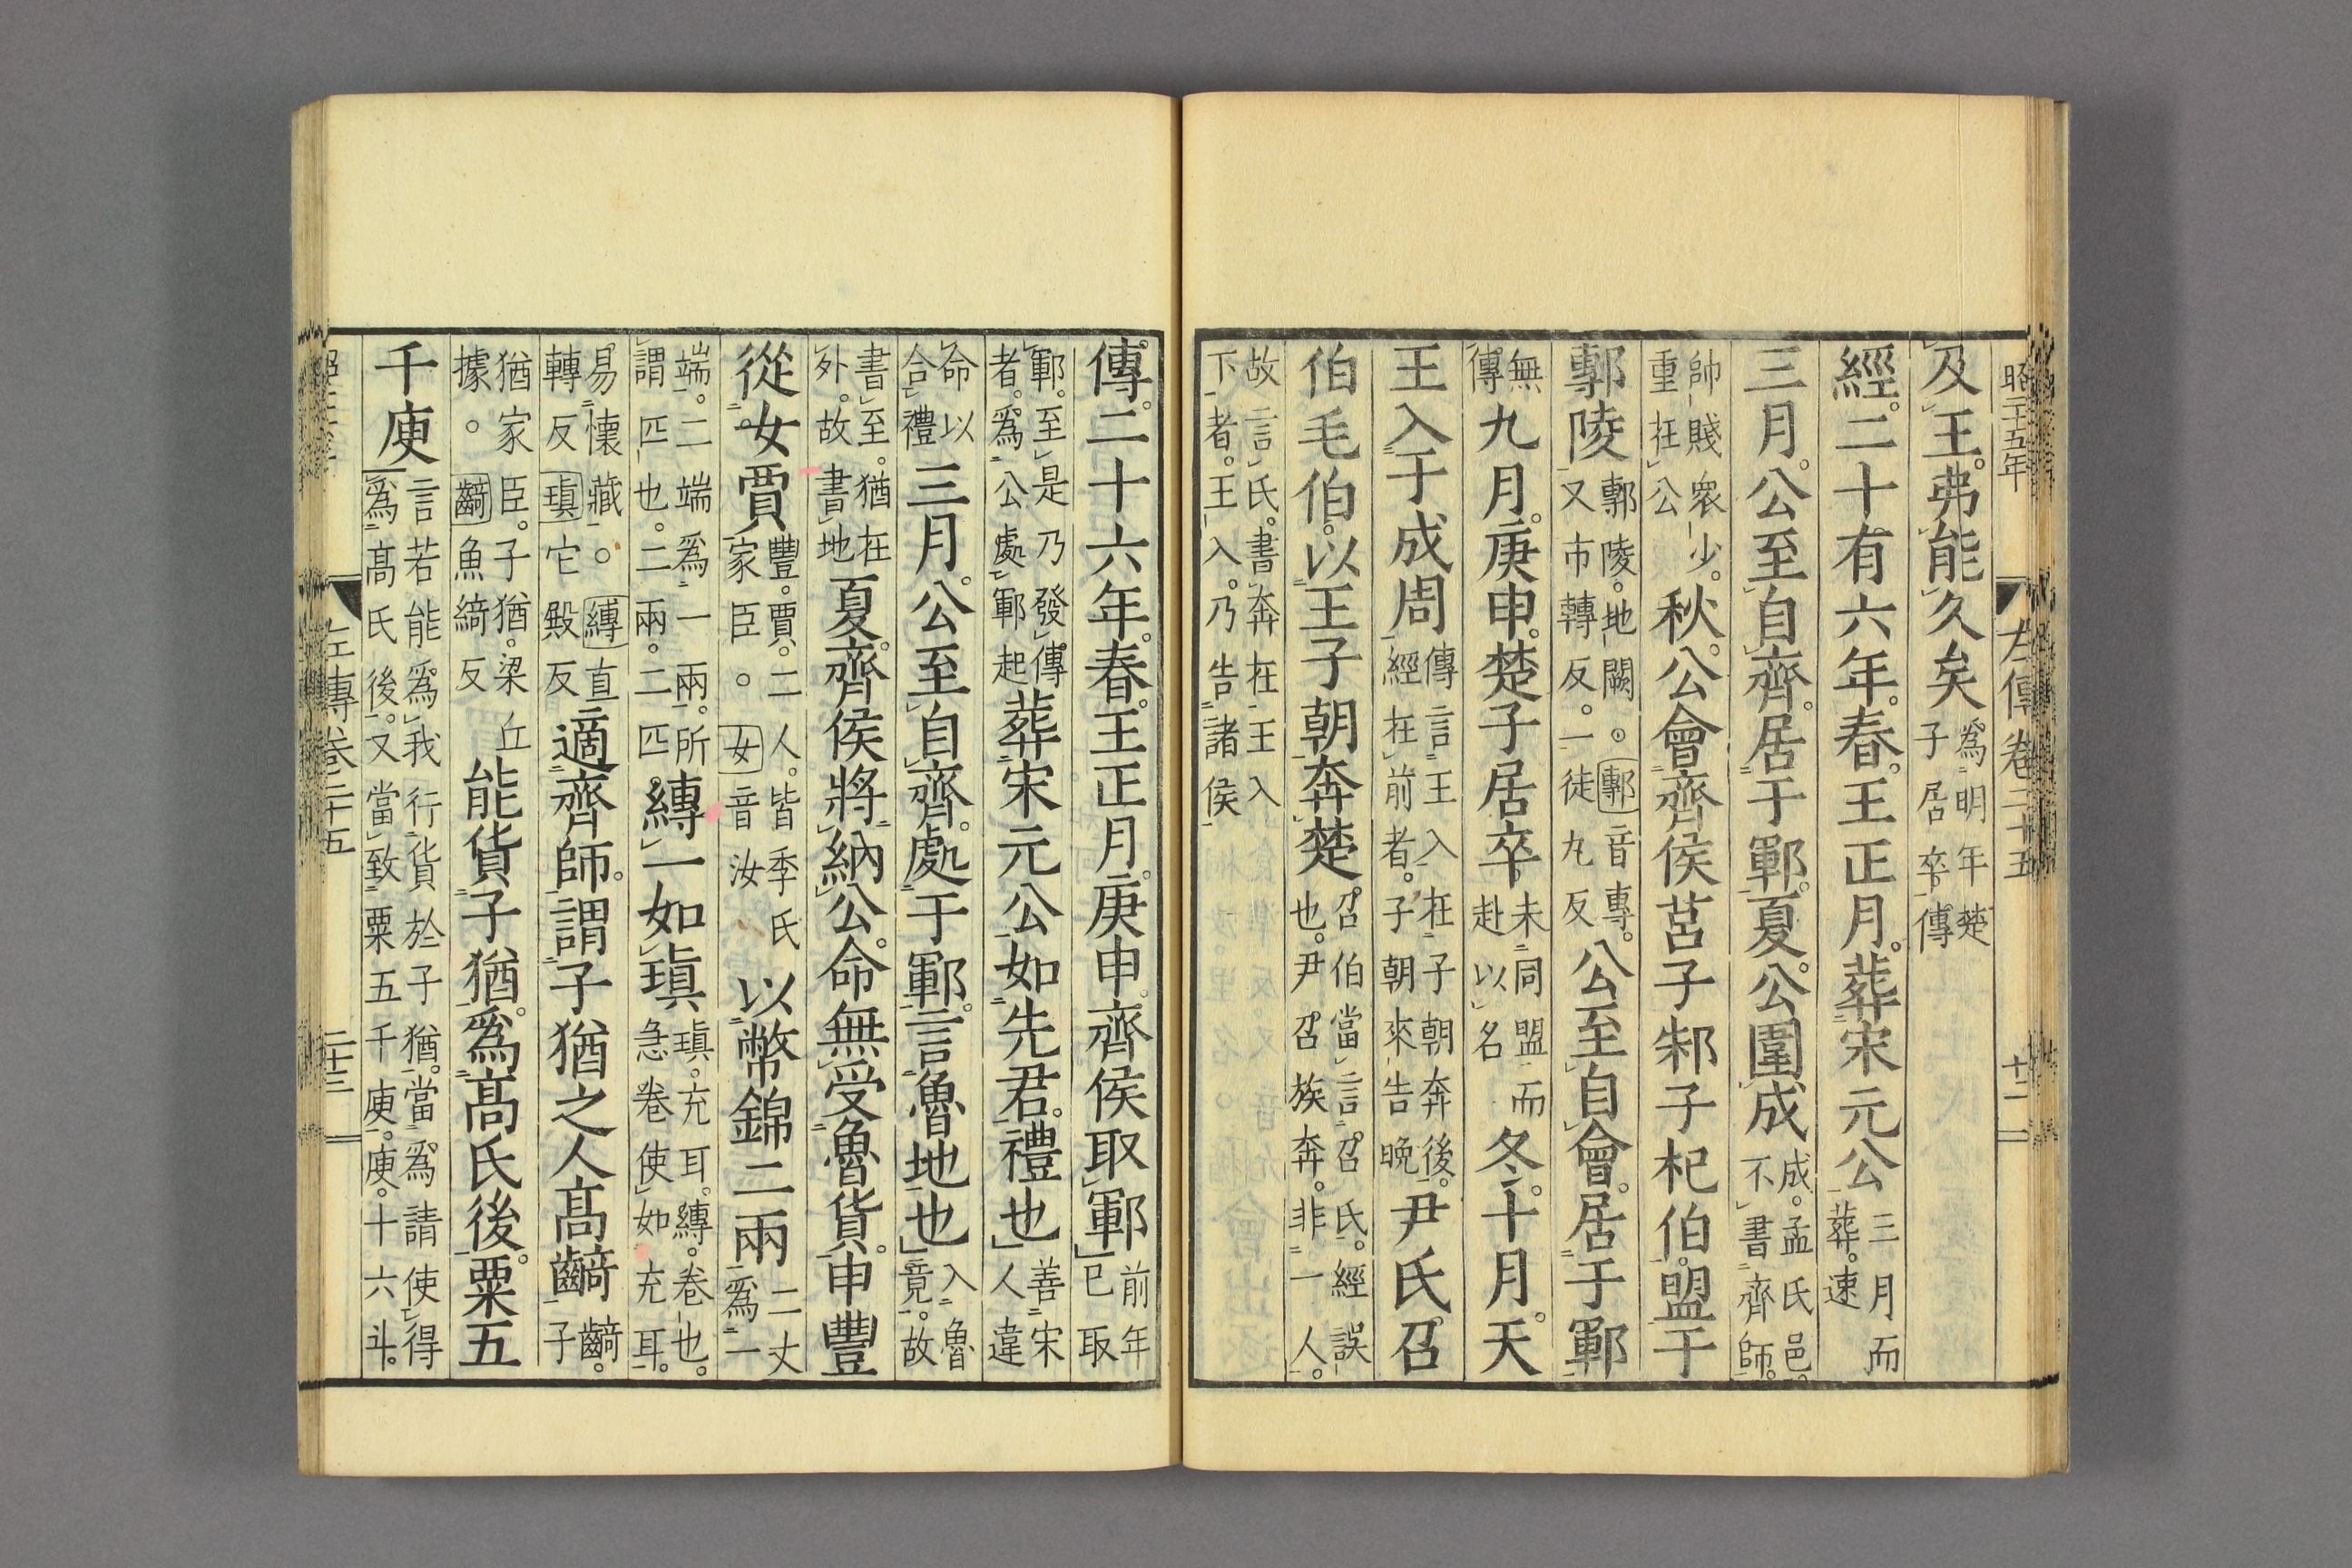 昭二十五年 左傳卷二十五 十二
及王。弗能久矣爲明年楚子居卒。傳
經。二十有六年。春。王正月。葬宋元公三月而葬。速
三月。公至自齊。居于鄆。夏。公圍成成。孟氏邑。不書齊師。
帥賤衆少。重在公秋。公會齊侯莒子邾子杞伯。盟于
鄟陵鄟陵。地闕。○鄟音專。又市轉反。一徒丸反公至自會。居于鄆
無傳。九月。庚申。楚子居卒。未同盟而赴以名冬。十月。天
王入于成周傳言王入在子朝奔後。經在前者。子朝來告晩尹氏召
伯毛伯。以王子朝奔楚。召伯當言召氏。經誤也。尹召族奔。非一人。
故言氏。書奔在王入下者。王入。乃告諸侯
傳。二十六年。春。王正月。庚申齊侯取鄆前年已取
鄆。至是乃發傳者。爲公處鄆起葬宋元公如先君。禮也善宋人違
命以合禮三月。公至自齊。處于鄆。言魯地也入魯竟。故
書至。猶在外。故書地夏。齊侯將納公。命無受魯貨。申豐
從女賈豐。賈。二人。皆季氏家臣。○女音汝以幣錦二兩二丈爲一
端。二端爲一兩。所謂匹也。二兩。二匹。縳一如瑱瑱。充耳。縳。卷也。急卷使如充耳。
易懷藏。○縳直轉反瑱它殿反適齊師。謂子猶之人高齮齮。子
猶家臣。子猶。梁丘據。○齮魚綺反能貨子猶。爲高氏後。粟五
千庾言若能爲我行貨於子猶。當爲請使得爲高氏後。又當致粟五千庾。庾。十六斗。
左傳卷二十五